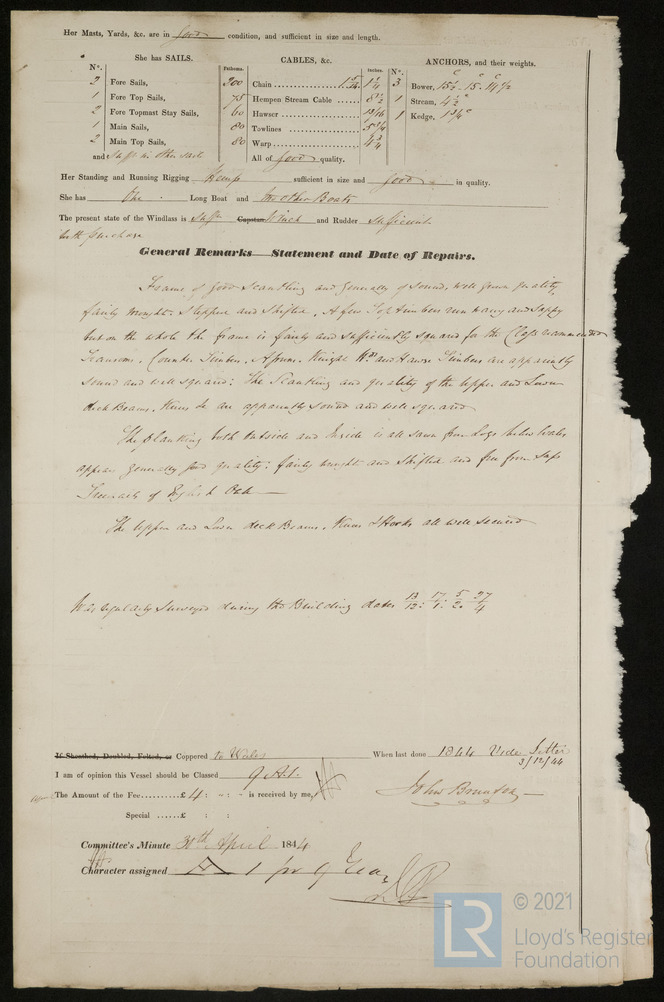 Her Masts, Yards, &c. are in good condition, and sufficient in size and length.
She has SAILS.
CABLES, &c.
ANCHORS, and their weights.
N°.
Fathoms.
Inches.
N°.
2 Fore Sails, 200 Chain 1¼ 3 Bower, 15½ - 15 - 14½
1 Fore Top Sails, 75 Hempen Stream Cable 8½ 1 Stream, 4½
2 Fore Topmast Stay Sails, 60 Hawser 1 Kedge,
1 Main Sails, 80 Towlines
2 Main Top Sails, 80 Warp
and other sails All of good quality.
Her Standing and Running Rigging Hemp sufficient in size and good in quality.
She has One Long Boat and two other Boats
The present state of the Windlass is Suffr Capstan Winch and Rudder sufficient
with purchase
General Remarks Statement and Date of Repairs.
Frame of good scantling and generally of sound, well grown quality,
fairly wrought, stepped and shifted. A few Top timbers run wany and sappy
but on the whole the frame is fairly and sufficiently squared for the Class recommended
Transoms. Counter Timbers. Aprons. Knight Hds and Hawse Timbers are apparently
sound and well squared: The Scantling and quality of the upper and Lower
deck Beams. Knees &c are apparently sound and well squared
The planking both outside and inside is all sawn from Logs below Wales
appear generally good quality: fairly wrought and shifted and free from sap
Treenails of English Oak
The upper and Lower deck Beams. Knees & Hooks all well secured
Was regularly surveyed during the Building dates 13/12: 17/1: 5/2. 27/4
If Sheathed, Doubled, Felted, or Coppered to Wales When last done 1844 Vide Letter
3/12/44
I am of opinion this Vessel should be Classed 9 A.1.
The Amount of the Fee..........£ 4 : - : - is received by me,
John Brunton
Special ......£ : :
Committee's Minute 30th April 1844
Character assigned A 1 for 9 Years
© 2021
LR
Lloyd's Register
Foundation